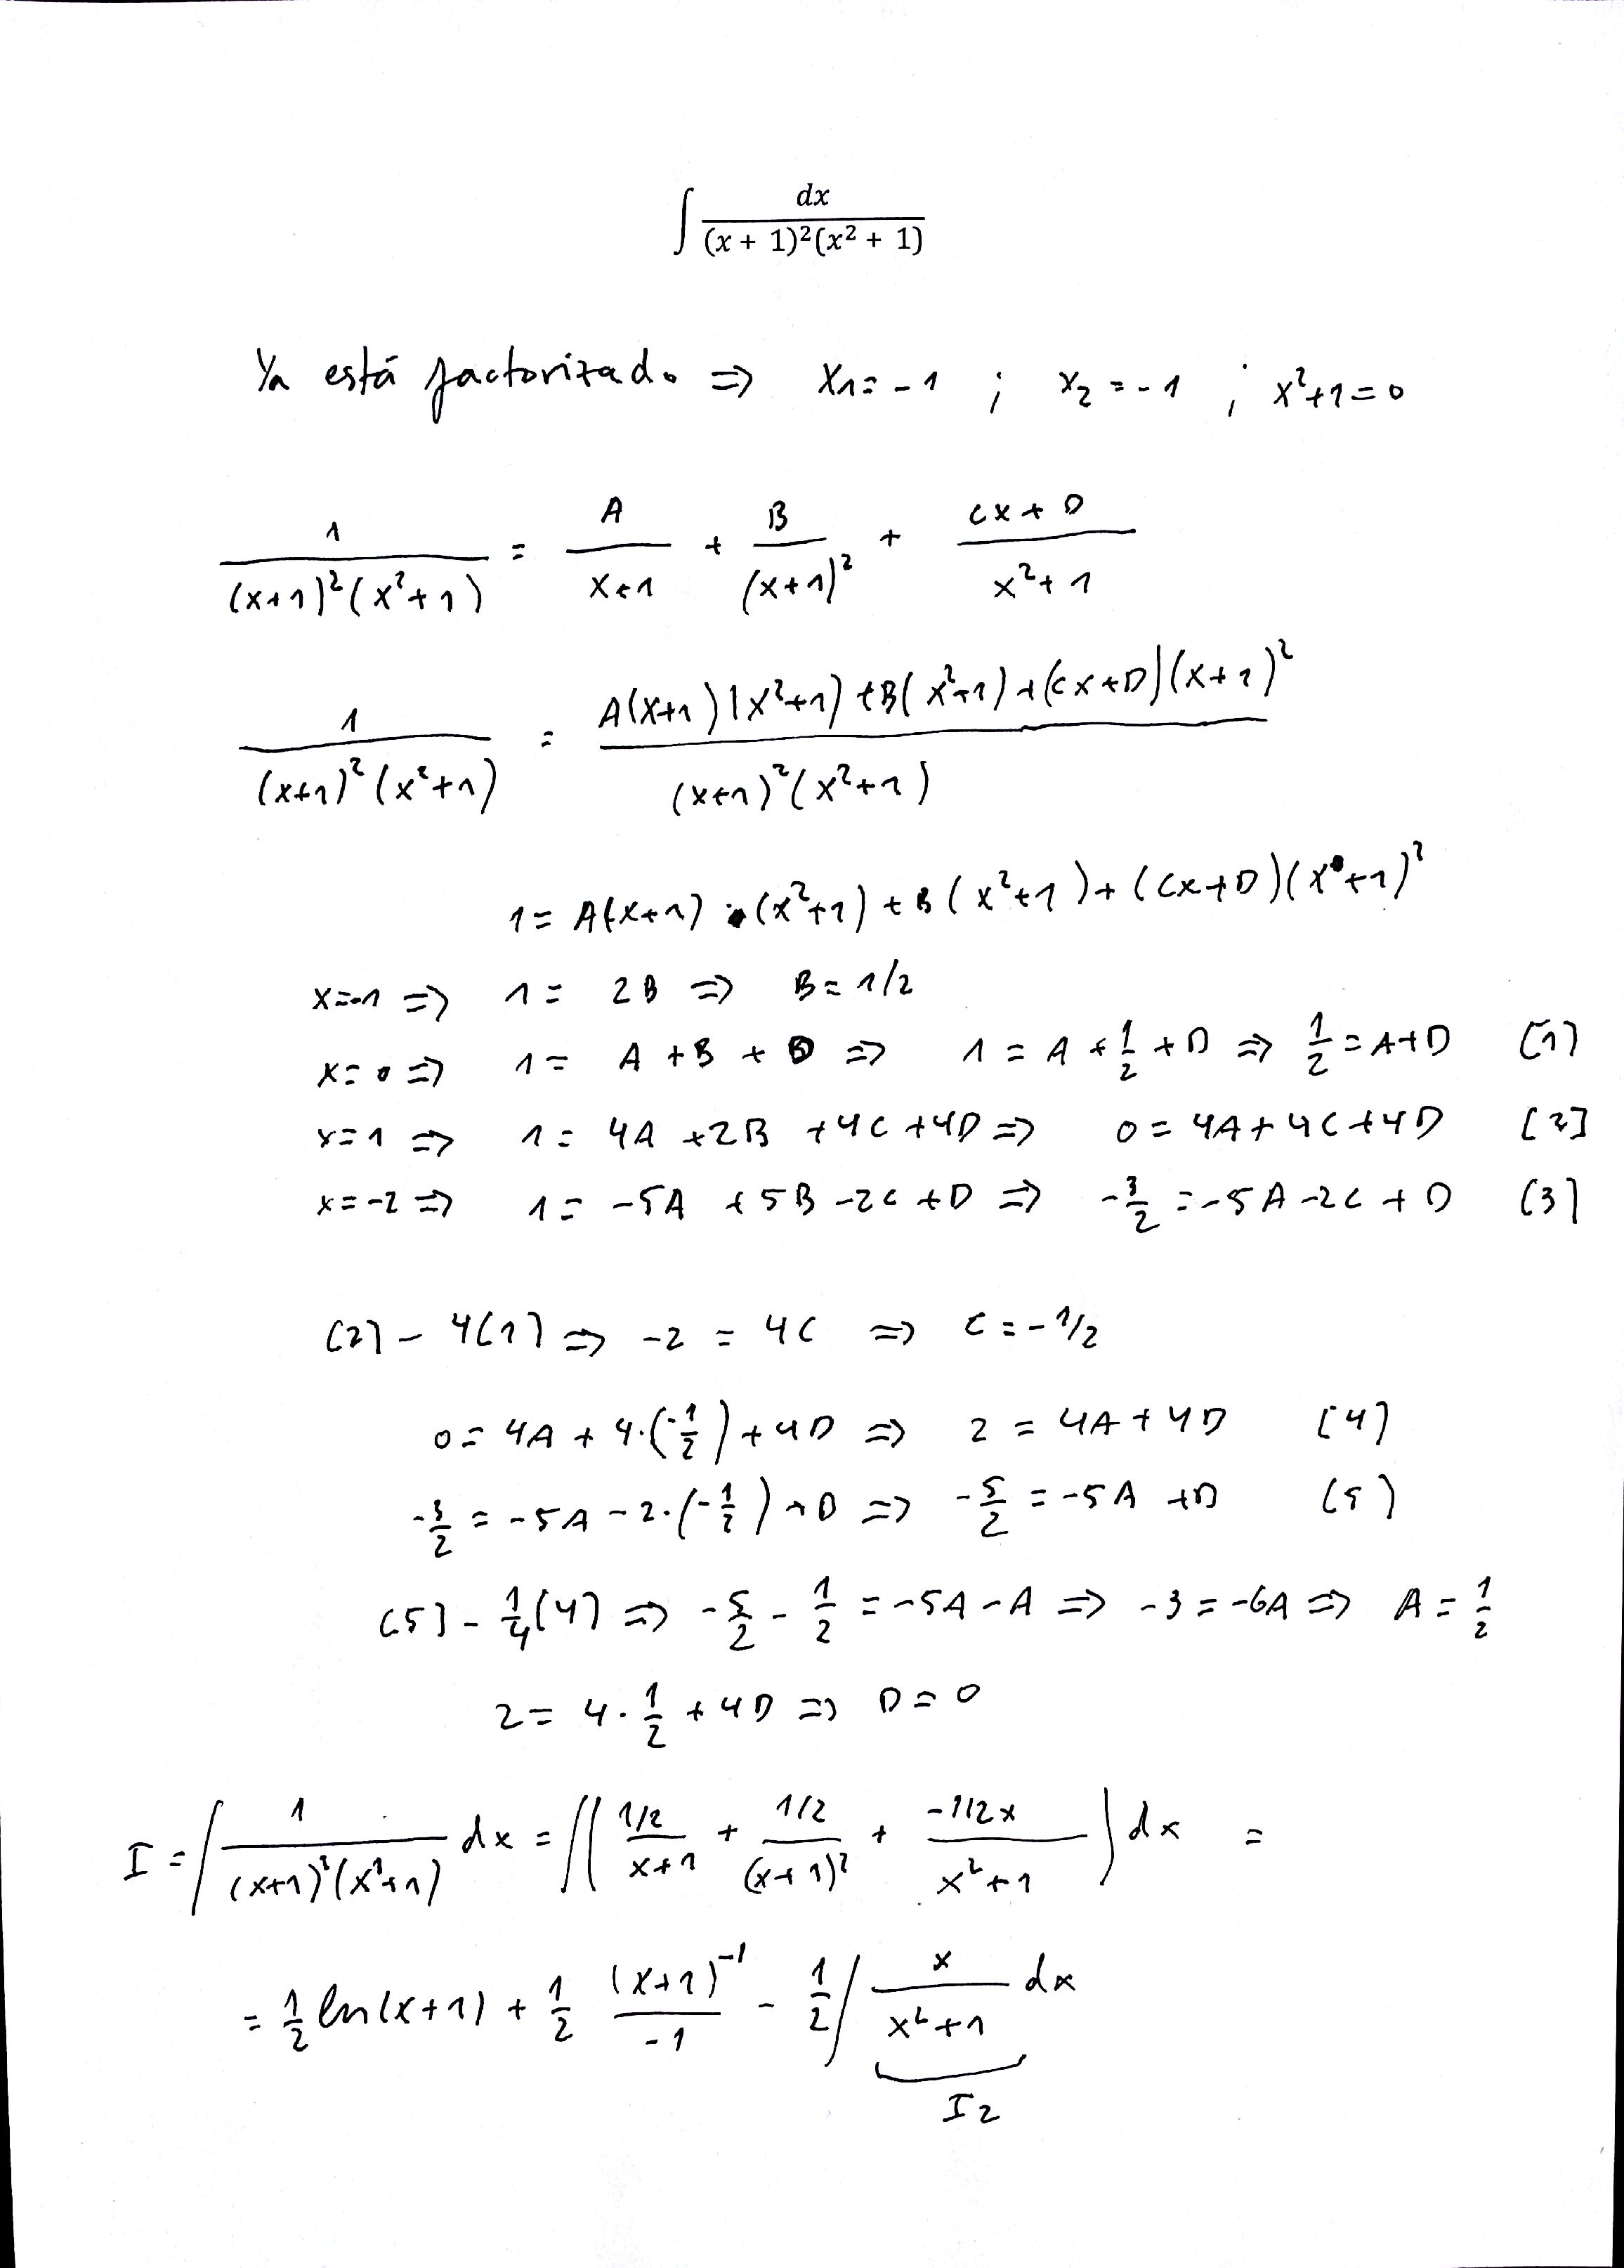 ∫ dx / (x + 1)²(x² + 1)
Ya está factorizado => x₁ = -1 ; x₂ = -1 ; x²+1=0
1 / (x+1)²(x²+1) = A / x+1 + B / (x+1)² + Cx+D / x²+1
1 / (x+1)²(x²+1) = A(x+1)(x²+1)+B(x²+1)+(Cx+D)(x+1)² / (x+1)²(x²+1)
1 = A(x+1)·(x²+1)+B(x²+1)+(Cx+D)(x+1)²
x=-1 => 1 = 2B => B=1/2
x=0 => 1 = A+B+D => 1 = A+1/2+D => 1/2 = A+D (1)
x=1 => 1 = 4A+2B+4C+4D => 0 = 4A+4C+4D (2)
x=-2 => 1 = -5A+5B-2C+D => -3/2 = -5A-2C+D (3)
(2) - 4(1) => -2 = 4C => C = -1/2
0 = 4A+4·(-1/2)+4D => 2 = 4A+4D (4)
-3/2 = -5A-2·(-1/2)+D => -5/2 = -5A+D (5)
(5) - 1/4(4) => -5/2 - 1/2 = -5A-A => -3 = -6A => A = 1/2
2 = 4·1/2+4D => D = 0
I = ∫ 1 / (x+1)²(x²+1) dx = ∫( 1/2 / x+1 + 1/2 / (x+1)² + -1/2x / x²+1 ) dx =
= 1/2 ln(x+1) + 1/2 (x+1)⁻¹ / -1 - 1/2 ∫ x / x²+1 dx
I2